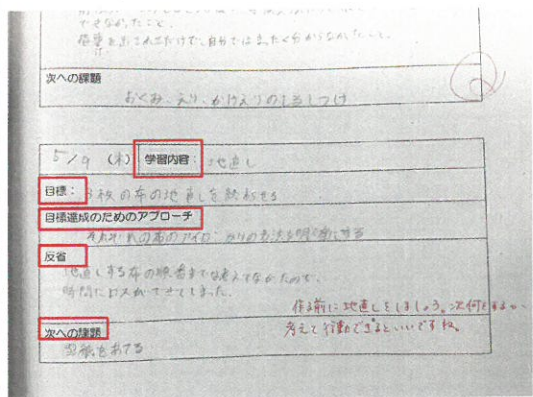 できなかったこと。
次への課題
おくみ、えり、かけえりの
5/9 (木) 学習内容: 地直し
目標: 3枚の布の地直しを終わらせる
目標達成のためのアプローチ
それぞれの布のアイロンがけの方法を明確にする
反省
地直しする布の順番まで考えてなかったので、
時間にロスができてしまった。
作る前に地直しをしましょう。次何をするか
考えて行動できるといいですね。
次への課題
をあてる